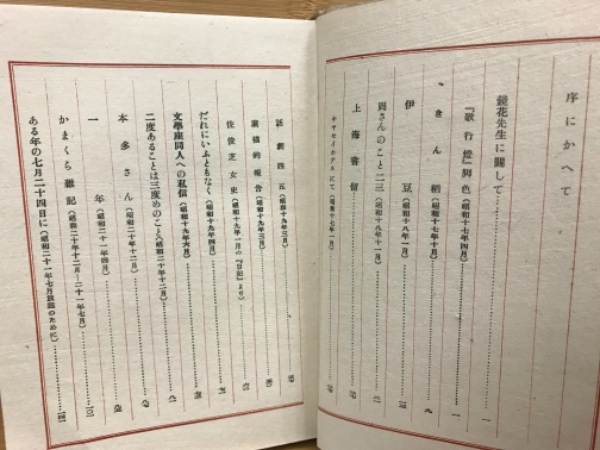 序にかへて
鏡花先生に關して……一
『歌行燈』脚色（昭和十七年四月）……一
きん稻（昭和十七年十月）……九
伊豆（昭和十八年一月）
岡さんのこと二三（昭和十八年十一月）
上海寄留
キヤセイホテルにて（昭和十七年一月）
話劇四五（昭和十九年三月）
業積的報告（昭和十九年三月）
佐俊芝女史（昭和十九年一月の『日記』より）
だれにいふともなく（昭和十九年四月）
文學座同人への私信（昭和十九年六月）
二度あることは三度めのこと（昭和二十年十二月）
本多さん（昭和二十年十二月）
一年（昭和二十一年四月）
かまくら雜記（昭和二十年十二月―二十一年七月）
ある年の七月二十四日に（昭和二十一年七月放送のために）